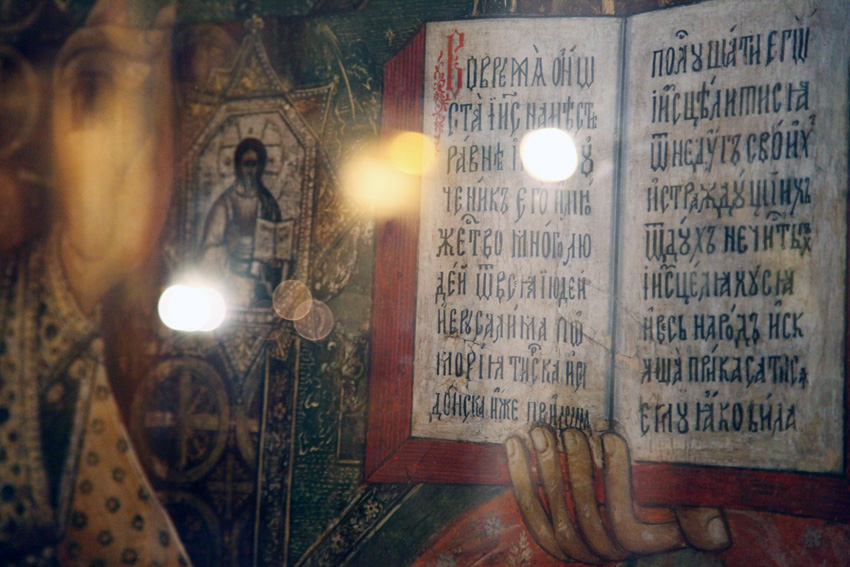 Вовремѧ ѻнѡ
ста ійс намѣстѣ
равнѣ
ченикъ его имнѡ
жество многолю
дей ѿвсеѧ іюдеи
иерусалима по
морїѧ тирска иси
донска иже прїидоша
послушати его
иисцѣлитисѧ
ѿнедугъ своих
истраждущїих
ѿдухъ нечистых
иисцелѧхусѧ
ивесь народъ иск
аша прикасатисѧ
ему ꙗковила